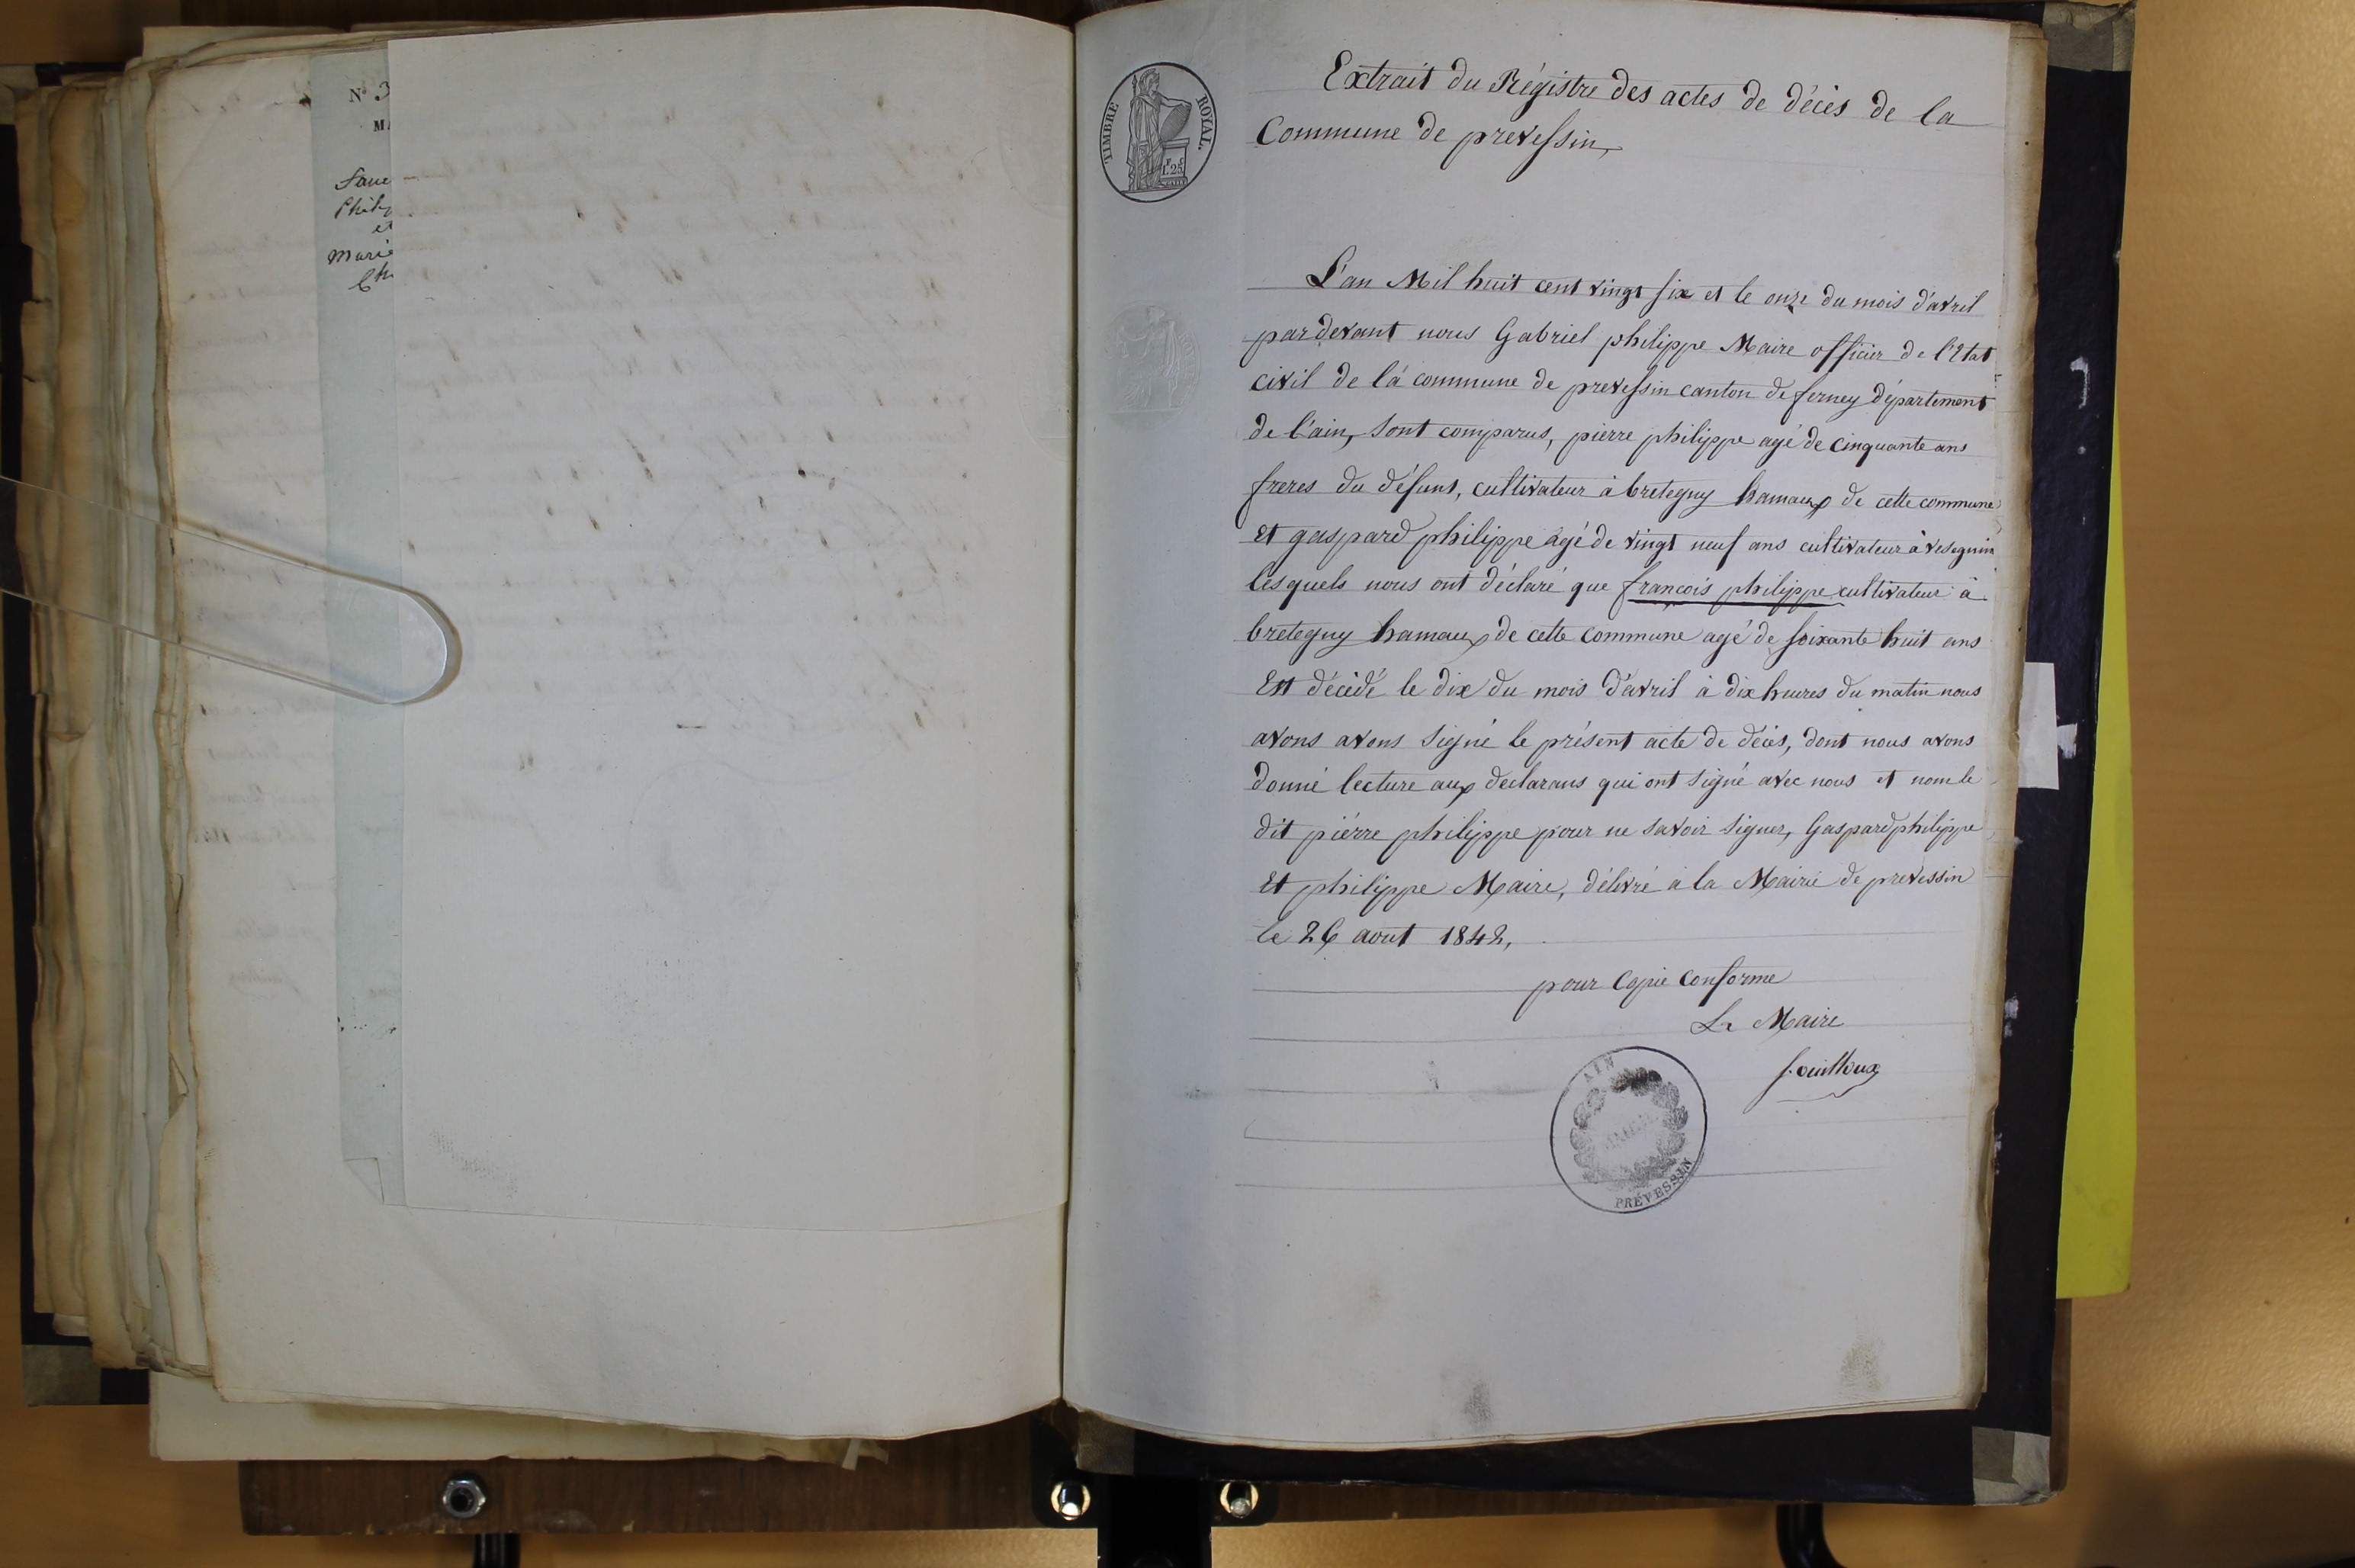 N° 3
Ma
Phil
et
Marie
Ch
TIMBRE ROYAL.
1.25
Extrait du Régistre des actes de décès de la
Commune de prevessin,
L'an Mil huit cent vingt six et le onze du mois d'avril
par devant nous Gabriel philippe Maire officier de l'Etat
civil de la commune de prevessin canton de ferney département
de l'ain, sont comparus, pierre philippe agé de cinquante ans
freres du défunt, cultivateur à bretegny hamaux de cette commune
et gaspard philippe agé de vingt neuf ans cultivateur à vesegnin
lesquels nous ont déclaré que francois philippe cultivateur à
bretegny hamaux de cette commune agé de soixante huit ans
Est décédé le dix du mois d'avril à dix heures du matin nous
avons avons signé le présent acte de décès, dont nous avons
donné lecture aux declarans qui ont signé avec nous et non le
dit pierre philippe pour ne savoir signer, Gaspard philippe
et philippe Maire, délivré à la Mairie de prevessin
le 26 aout 1842,
pour Copie Conforme
Le Maire
AIN
MAIRIE
PRÉVESSIN